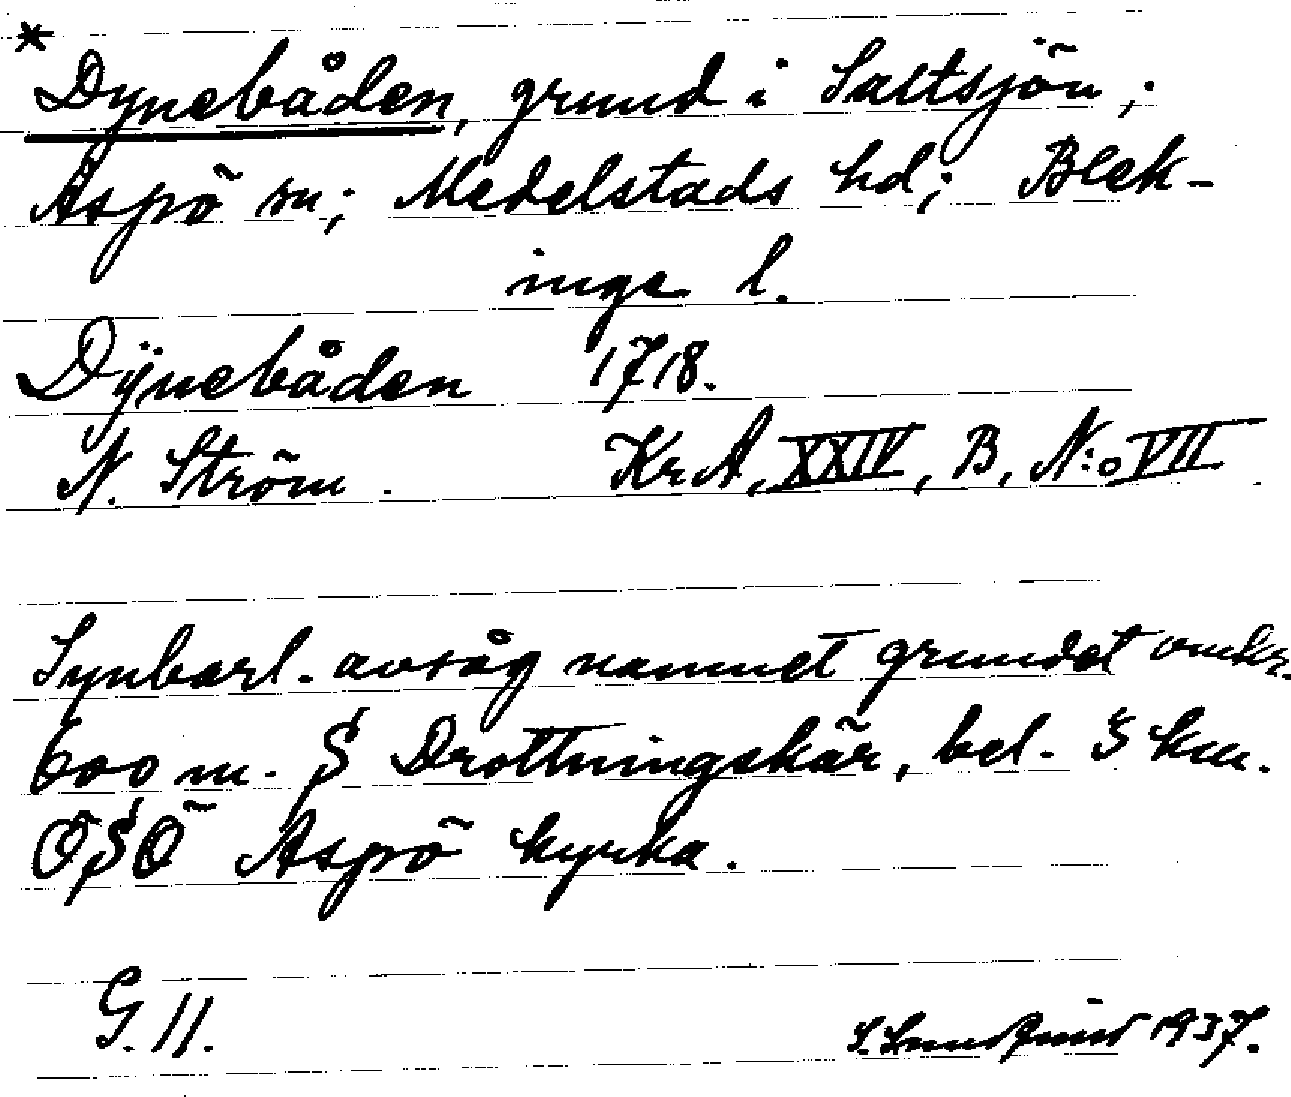 * Dynebåden, grund i Saltsjön;
Aspö sn; Medelstads hd; Blek-
inge l.
Dÿnebåden 1718.
N. Ström. KrA, XXIV, B, N:o VII.
Synbarl. avsåg namnet grundet omkr.
600 m. S Drottningskär, bel. 3 km.
ÖSÖ Aspö kyrka.
G. 11.
S. 1937.